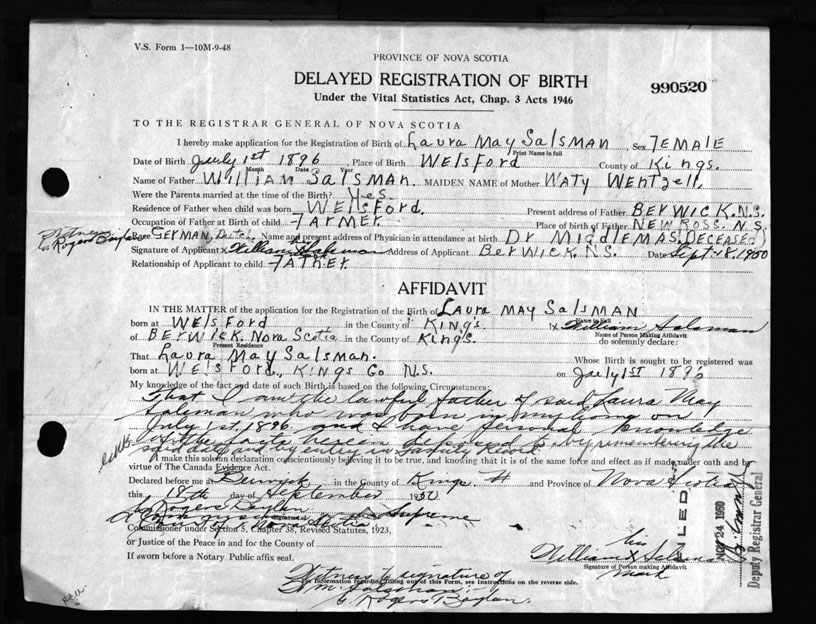 V.S. Form 1—10M-9-48
PROVINCE OF NOVA SCOTIA
DELAYED REGISTRATION OF BIRTH
990520
Under the Vital Statistics Act, Chap. 3 Acts 1946
TO THE REGISTRAR GENERAL OF NOVA SCOTIA
I hereby make application for the Registration of Birth of Laura May Salsman, Sex FEMALE
Print Name in full
Date of Birth July 1st 1896, Place of Birth Welsford County of Kings.
Month Date Year
Name of Father William Salsman. MAIDEN NAME of Mother Waty Wentzell.
Were the Parents married at the time of the Birth? Yes.
Residence of Father when child was born Welsford. Present address of Father Berwick. N.S.
Occupation of Father at Birth of child Farmer. Place of birth of Father New Ross. N.S.
Witness Rogers Race German, Dutch, Name and present address of Physician in attendance at birth Dr Middlemas. (Deceased)
Signature of Applicant x William Salsman Address of Applicant Berwick. N.S. Date Sept. 18, 1950
Relationship of Applicant to child Father.
AFFIDAVIT
IN THE MATTER of the application for the Registration of the Birth of Laura May Salsman
Name in Full
born at Welsford in the County of King's I x William Salsman
Name of Person Making Affidavit
of Berwick. Nova Scotia in the County of Kings. do solemnly declare:
Present Residence
That Laura May Salsman. Whose Birth is sought to be registered was
born at Welsford, Kings Co N.S. on July 1st 1896
My knowledge of the fact and date of such Birth is based on the following Circumstances:
That I am the lawful father of said Laura May
Salsman who was born in my home on
July 1st, 1896, and I have personal knowledge
of the facts herein deposed to by remembering the
said day and by entry in Family Record
I make this solemn declaration conscientiously believing it to be true, and knowing that it is of the same force and effect as if made under oath and by
virtue of The Canada Evidence Act.
Declared before me at Berwick in the County of Kings and Province of Nova Scotia
this 18th day of September 1950
Rogers
Supreme
Nova Scotia
Commissioner under Section 5, Chapter 38, Revised Statutes, 1923,
or Justice of the Peace in and for the County of
If sworn before a Notary Public affix seal.
his
William X Salsman
Signature of Person making Affidavit
mark
FILED
NOV 24 1950
Deputy Registrar General
Witness to signature of
For information regarding filling out of this Form, see Instructions on the reverse side.
Wm Salsman:
Rogers